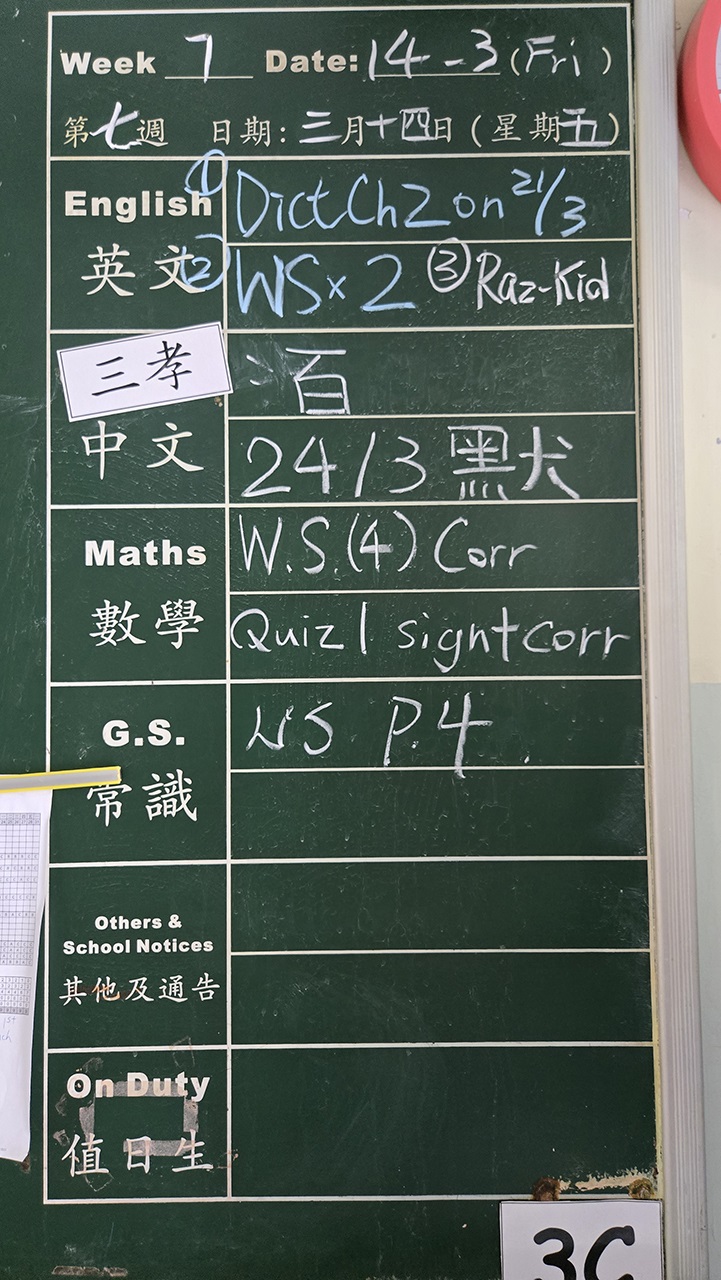 Week 7 Date: 14-3 (Fri)
第七週 日期: 三月十四日 (星期五)
English ① Dict Ch2 on 21/3
英文 ② WS x 2 ③ Raz-Kid
三孝
中文
24/3 黑犬
Maths W.S.(4) Corr
數學 Quiz 1 sign+corr
G.S. WS P.4
常識
Others &
School Notices
其他及通告
On Duty
值日生
3C